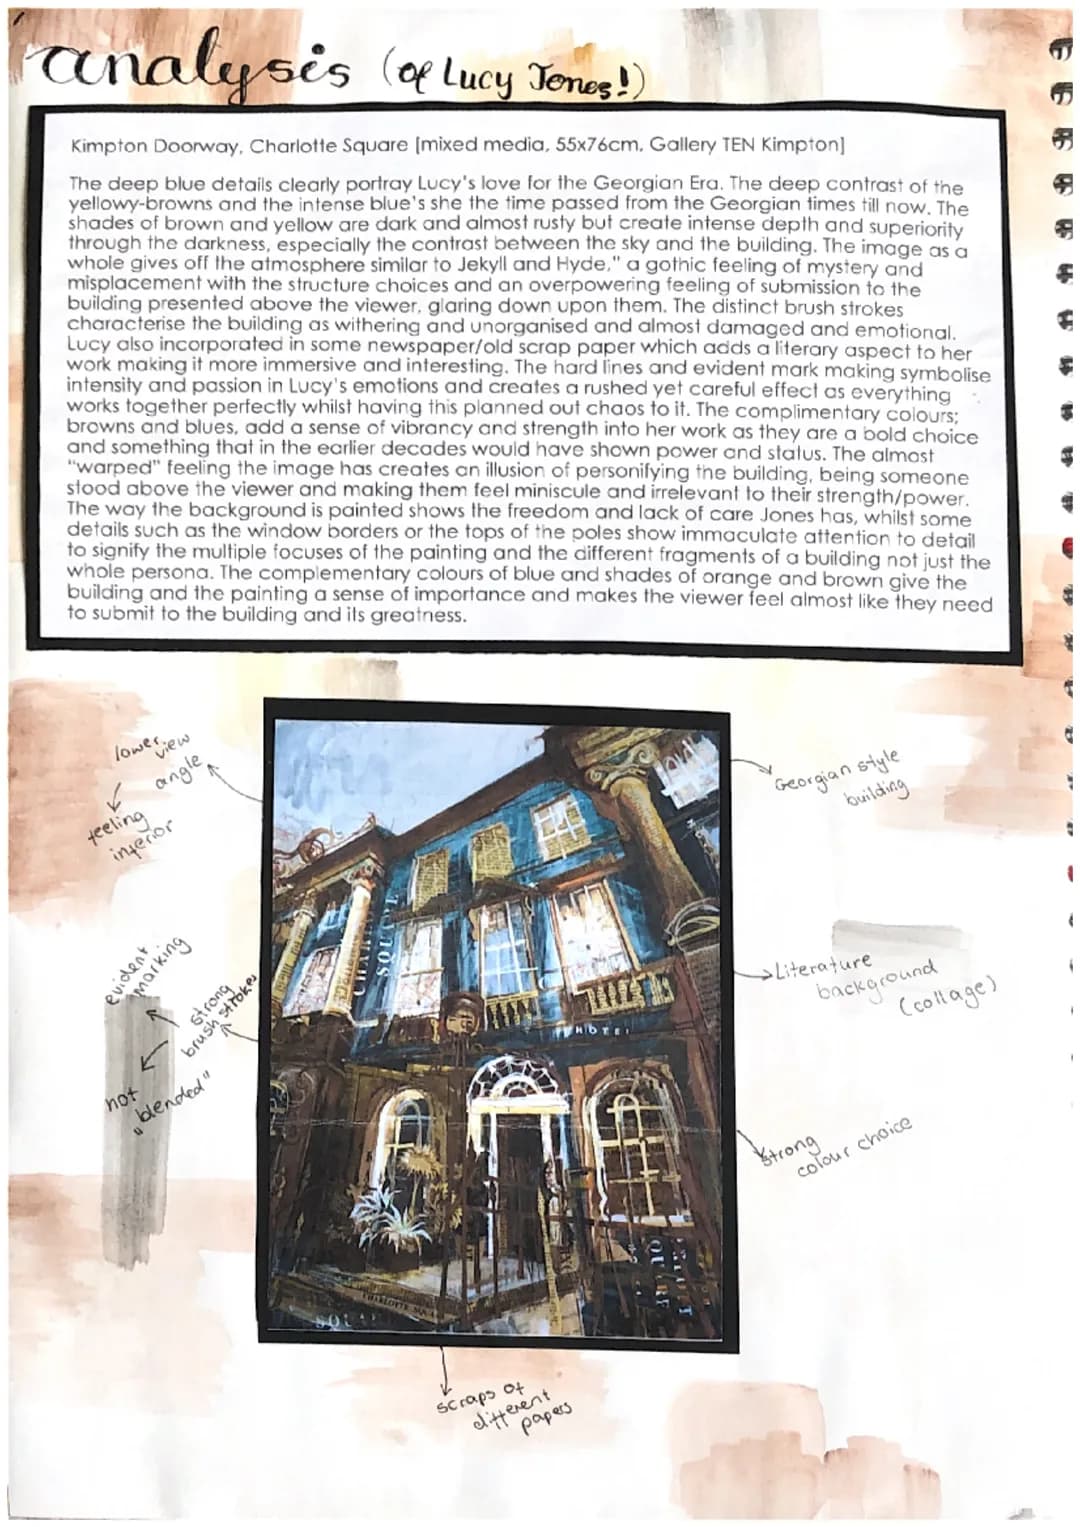 analysis (of Lucy Jones!)
Kimpton Doorway, Charlotte Square [mixed media, 55x76cm, Gallery TEN Kimpton]
The deep blue details clearly portray Lucy's love for the Georgian Era. The deep contrast of the
yellowy-browns and the intense blue's she the time passed from the Georgian times till now. The
shades of brown and yellow are dark and almost rusty but create intense depth and superiority
through the darkness, especially the contrast between the sky and the building. The image as a
whole gives off the atmosphere similar to Jekyll and Hyde," a gothic feeling of mystery and
misplacement with the structure choices and an overpowering feeling of submission to the
building presented above the viewer, glaring down upon them. The distinct brush strokes
characterise the building as withering and unorganised and almost damaged and emotional.
Lucy also incorporated in some newspaper/old scrap paper which adds a literary aspect to her
work making it more immersive and interesting. The hard lines and evident mark making symbolise
intensity and passion in Lucy's emotions and creates a rushed yet careful effect as everything
works together perfectly whilst having this planned out chaos to it. The complimentary colours;
browns and blues, add a sense of vibrancy and strength into her work as they are a bold choice
and something that in the earlier decades would have shown power and status. The almost
"warped" feeling the image has creates an illusion of personifying the building, being someone
stood above the viewer and making them feel miniscule and irrelevant to their strength/power.
The way the background is painted shows the freedom and lack of care Jones has, whilst some
details such as the window borders or the tops of the poles show immaculate attention to detail
to signify the multiple focuses of the painting and the different fragments of a building not just the
whole persona. The complementary colours of blue and shades of orange and brown give the
building and the painting a sense of importance and makes the viewer feel almost like they need
to submit to the building and its greatness.
lower view
angle
feeling
inferior
Georgian style
building
evident
marking
strong
brush strokes
not
"blended"
Literature
background
(collage)
strong
colour choice
CHARLOTTE SQUARE
SQUARE
HOTEL
scraps of
different
papers